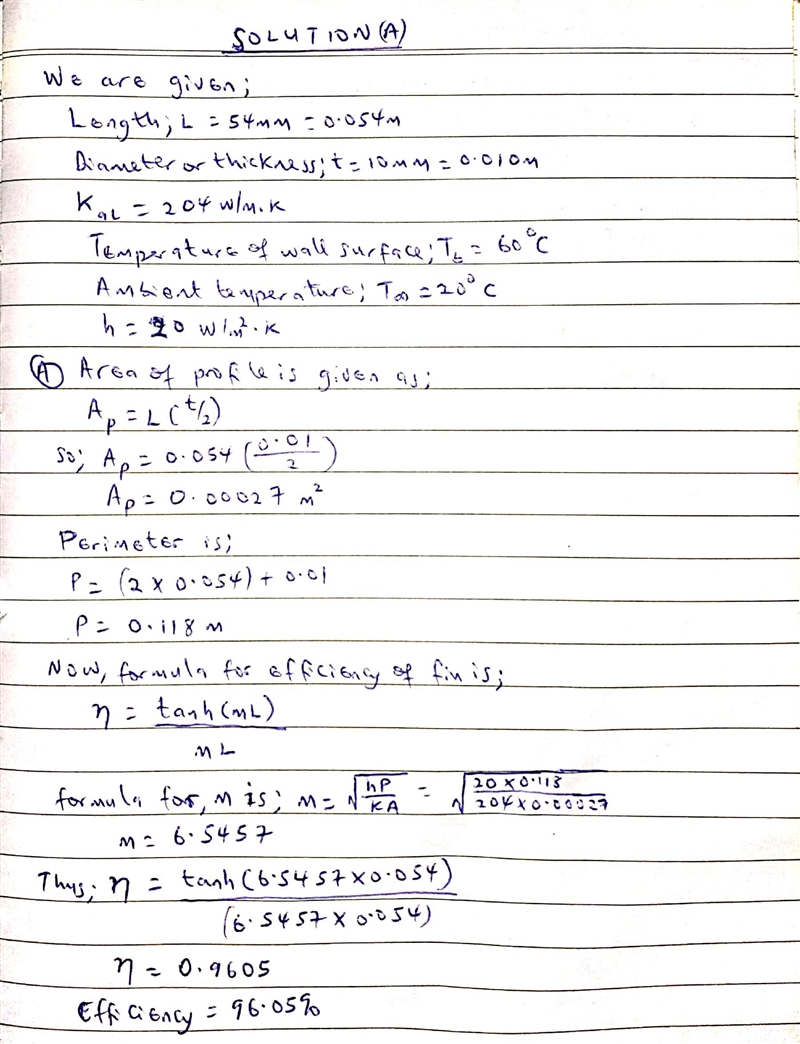 SOLUTION(A)
We are given;
Length; L = 54mm = 0.054m
Diameter or thickness; t = 10mm = 0.010m
K_aL = 204 W/m.K
Temperature of wall surface; T_b = 60°C
Ambient temperature; T∞ = 20°C
h = 20 W/m².K
(A) Area of profile is given as;
A_p = L(t/2)
So; A_p = 0.054 (0.01/2)
A_p = 0.00027 m²
Perimeter is;
P = (2 x 0.054) + 0.01
P = 0.118 m
Now, formula for efficiency of fin is;
η = tanh(mL)
mL
formula for, m is; m = √(hP/KA) = √(20 x 0.118/204 x 0.00027)
m = 6.5457
Thus; η = tanh(6.5457 x 0.054)
(6.5457 x 0.054)
η = 0.9605
Efficiency = 96.05%